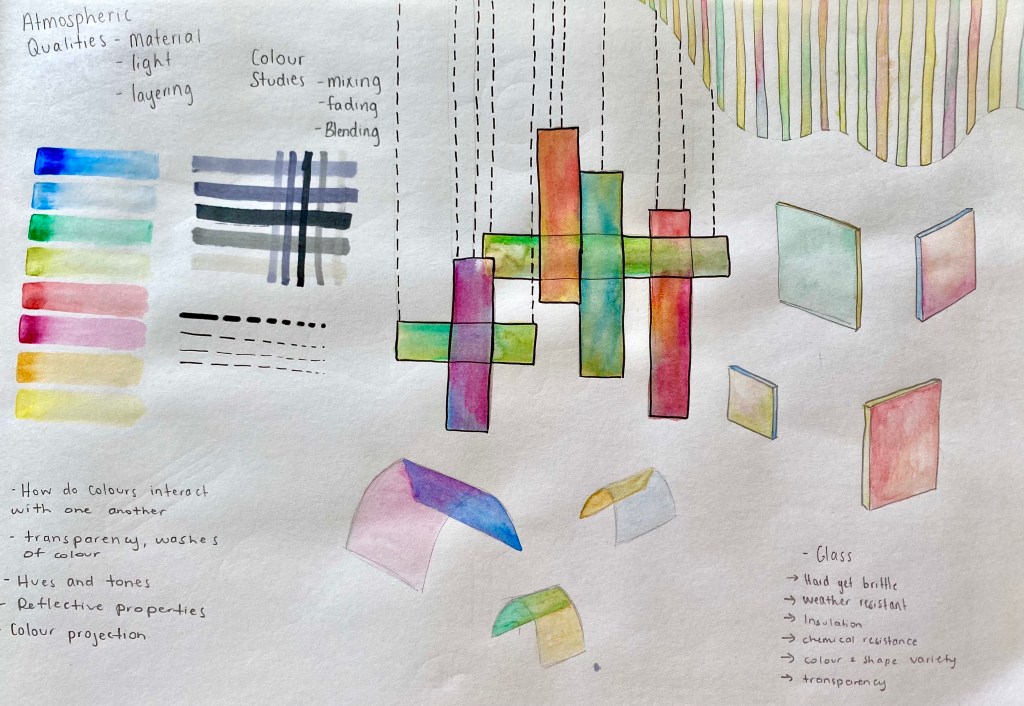 Atmospheric
Qualities - Material
- light
- layering
Colour
Studies - mixing
- fading
- Blending
- How do colours interact
with one another
- transparency, washes
of colour
- Hues and tones
- Reflective properties
- Colour projection
- Glass
→ Hard yet brittle
→ weather resistant
→ Insulation
→ chemical resistance
→ colour & shape variety
→ transparency